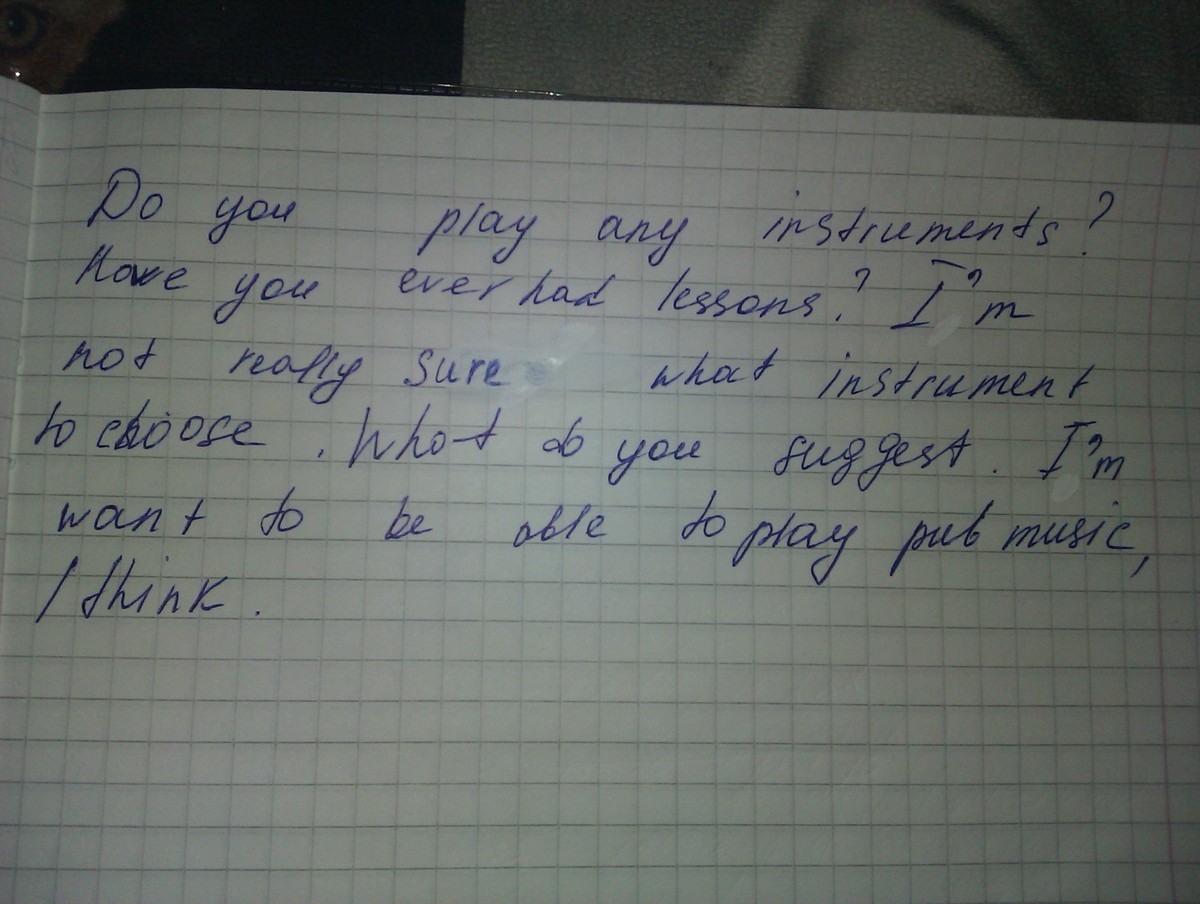 Do you play any instruments?
Have you ever had lessons? I'm
not really sure what instrument
to choose. What do you suggest. I'm
want to be able to play pub music,
I think.